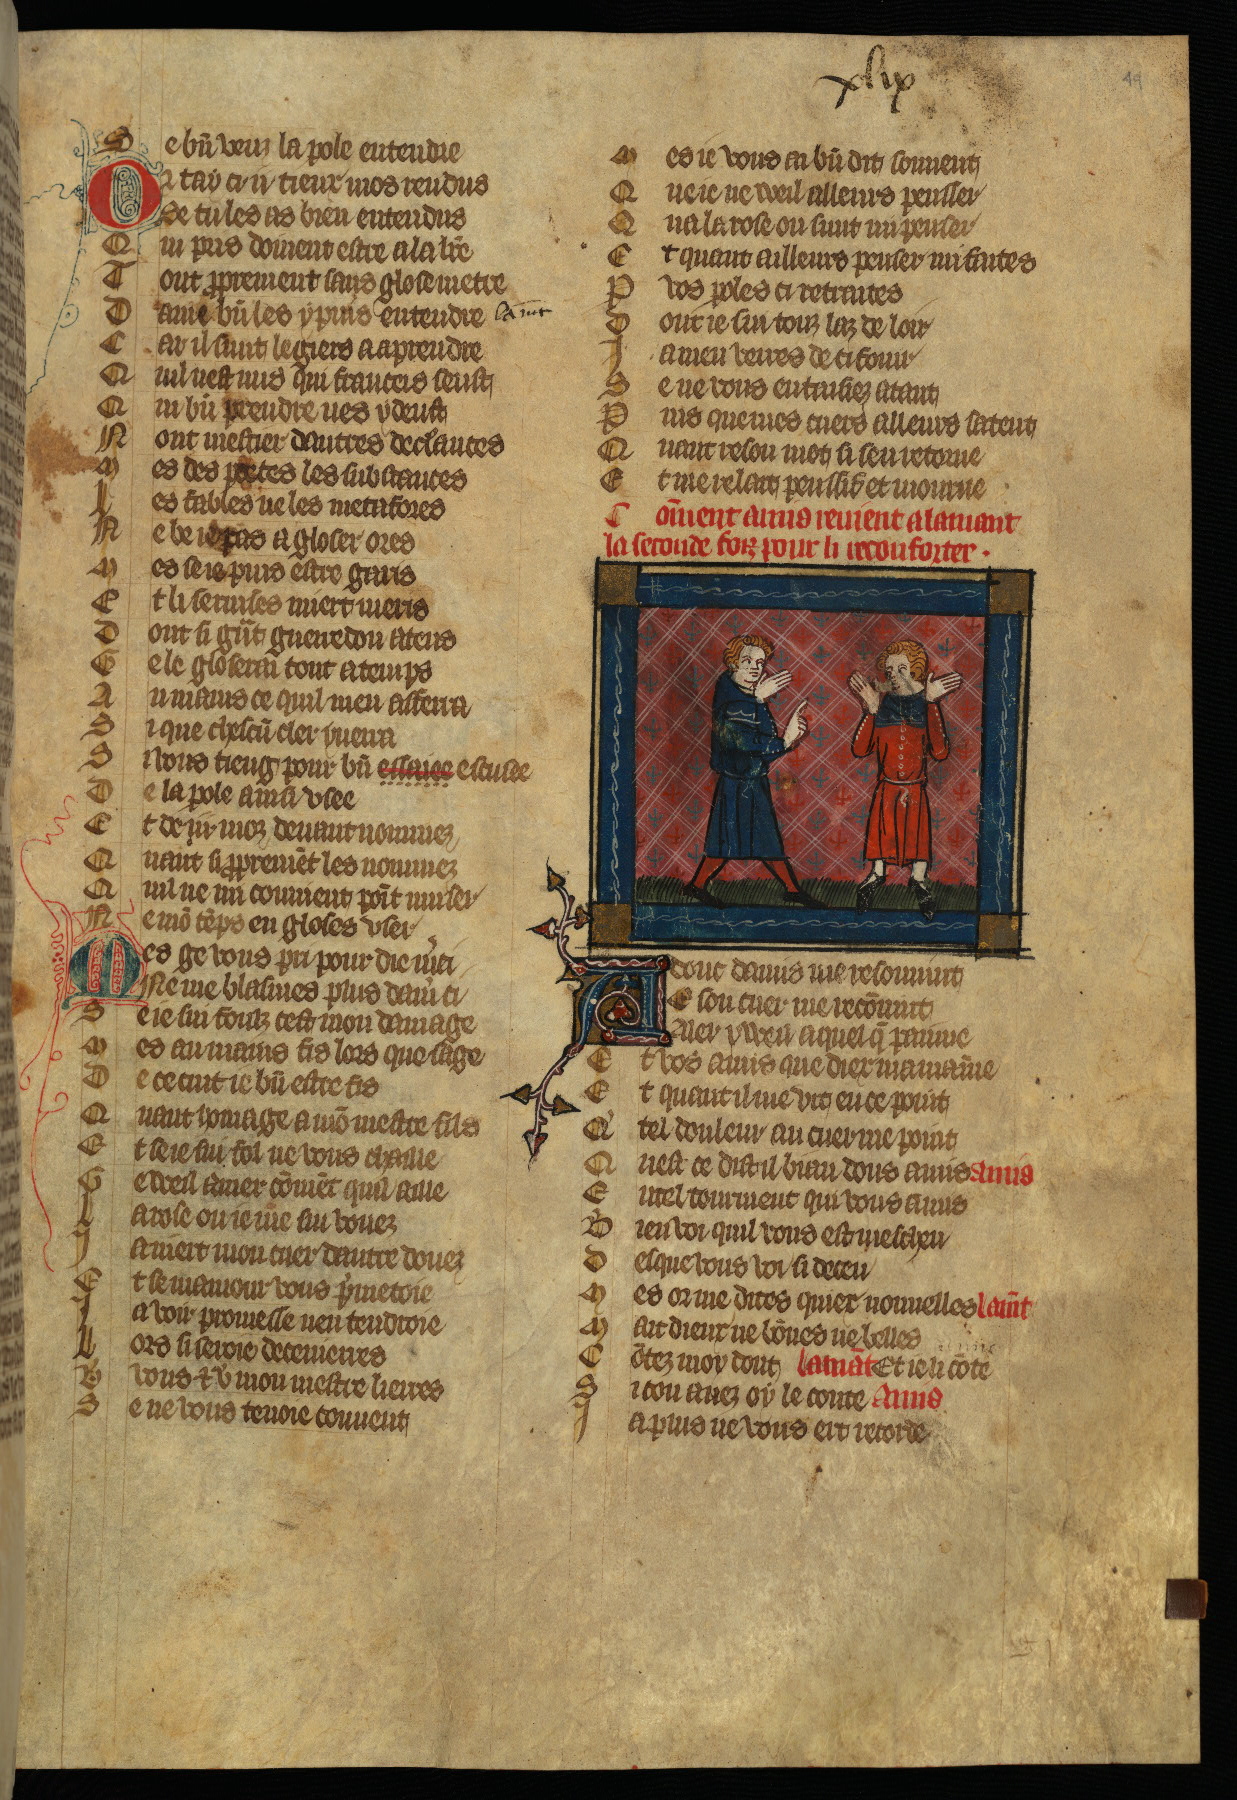 xlix
49
Se bn̄ veuz la pole entendre
Or tay ci ii tieux mos rendus
Se tu les as bien entendus
Qui puis doivent estre a la lr̄e
Tout ꝓprement sans glose metre
Dame bn̄ les y puis entendre lamt
Car il sunt legiers a aprendre
Quil nest nus qui francois seust
Qui bn̄ prendre nes y deust
Nont mestier dautres declances
Mes des poetes les substances
Les fables ne les metafores
Ne be ie pas a gloser ores
Mes se ie puis estre gueris
Et li seruises miert meris
Dont si gn̄t guerredon atens
Ge le gloserai tout a temps
Au mains ce quil men afferra
Si que chescū cler y verra
Si vous tieng pour bn̄ escusee
De la pole ainsi vsee
Et de ii moz deuant nommez
Quant si ꝓpremēt les nommez
Quil ne mi couuient point muser
Ne mō tēps en gloses vser
Mes ge vous pri pour dieu mci
Ne me blasmes plus damer ci
Se ie sui foulz cest mon damage
Mes au mains fis lors que sage
De ce cuit ie bn̄ estre fis
Quant homage a mō mestre fis
Et se ie sui fol ne vous chaille
Ge weil amer cōmēt quil aille
La rose ou ie me sui vouez
Ja niert mon cuer dautre douez
Et se mamour vous pmetoie
Ja voir promesse nen tendroie
Lors si seroie decevierres
Vers vous ou vers mon mestre lierres
Se ne vous tenoie couuent
Mes ie vous ai bn̄ dit souuent
Que ie ne weil alleurs pensser
Qua la rose ou sunt mi penser
Et quant ailleurs penser mi faites
P vos poles ci retraites
Dont ie sui touz laz de loir
Ja men verres de ci fouir
Se ne vous en taisiez atant
Puis que mes cuers alleurs satent
Quant reson mot si sen retorne
Et me relait penssif et mourne
Cōment amis reuient a lamant
la seconde foiz pour li reconforter
Adonc damis me resouuint
E son cuer me recōuint
Aler y weil a quel q̄ paine
Et vos amis que diex mamaine
Et quant il me vit en ce point
Q' tel douleur au cuer me point
Quest ce dist il biau dous amis amis
En tel tourment qui vous a mis
Bien voi quil vous est mescheu
Des que vous voi si deceu
Mes or me dites quiex nouuelles lamt
Mait diex ne bōnes ne belles
Cōtez moy tout lamāt Et ie li cōte
Si con auez oy le conte Amis
Ja plus ne vous ert recorde